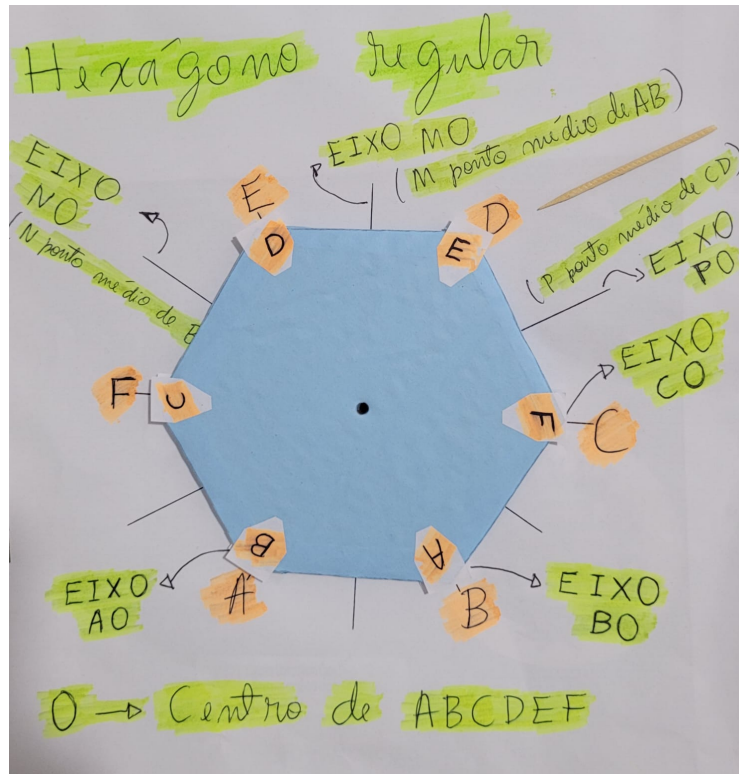 Hexágono regular
EIXO MO
(M ponto médio de AB)
EIXO
NO
(N ponto médio de B
E
D
D
E
(P ponto médio de CD)
EIXO
PO
EIXO
CO
F
C
F
C
B
A
A
B
EIXO
AO
EIXO
BO
O → Centro de ABCDEF